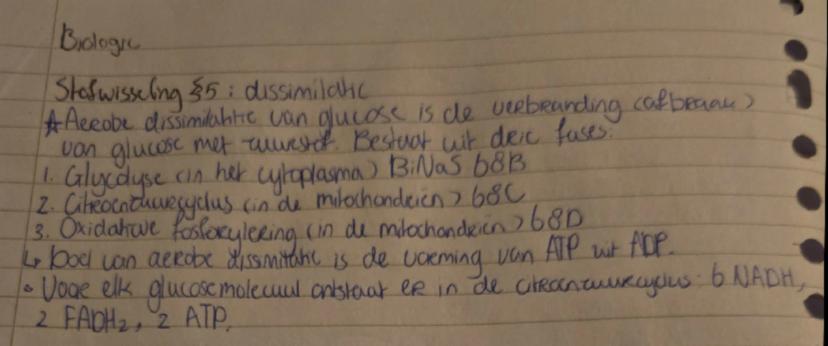 Biologie
Stofwisseling §5: dissimilatie
☆ Aerobe dissimilatie van glucose is de verbranding (afbraak)
van glucose met zuurstof. Bestaat uit drie fases:
1. Glycolyse (in het cytoplasma) BiNaS 68B
2. Citroenzuurcyclus (in de mitochondriën) 68C
3. Oxidatieve fosforylering (in de mitochondriën) 68D
↳ Doel van aerobe dissimilatie is de vorming van ATP uit ADP.
• Voor elk glucosemolecuul ontstaat er in de citroenzuurcyclus: 6 NADH,
2 FADH₂, 2 ATP.